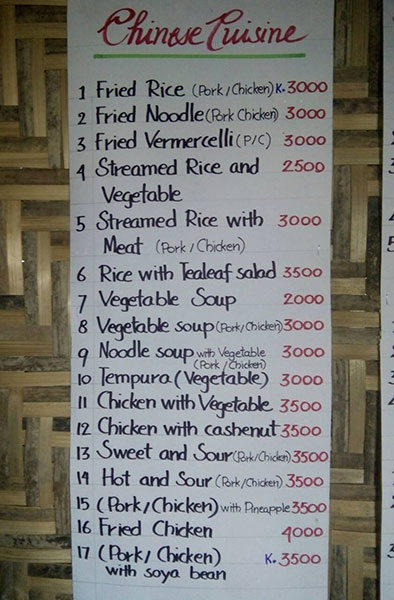 Chinese Cuisine
1 Fried Rice (Pork/Chicken) K. 3000
2 Fried Noodle (Pork Chicken) 3000
3 Fried Vermercelli (P/C) 3000
4 Streamed Rice and 2500
Vegetable
5 Streamed Rice with 3000
Meat (Pork/Chicken)
6 Rice with Tealeaf salad 3500
7 Vegetable Soup 2000
8 Vegetable soup (Pork/Chicken) 3000
9 Noodle soup with Vegetable 3000
(Pork/Chicken)
10 Tempura (Vegetable) 3000
11 Chicken with Vegetable 3500
12 Chicken with cashenut 3500
13 Sweet and Sour (Pork/Chicken) 3500
14 Hot and Sour (Pork/Chicken) 3500
15 (Pork/Chicken) with Pineapple 3500
16 Fried Chicken 4000
17 (Pork/Chicken) K. 3500
with soya bean